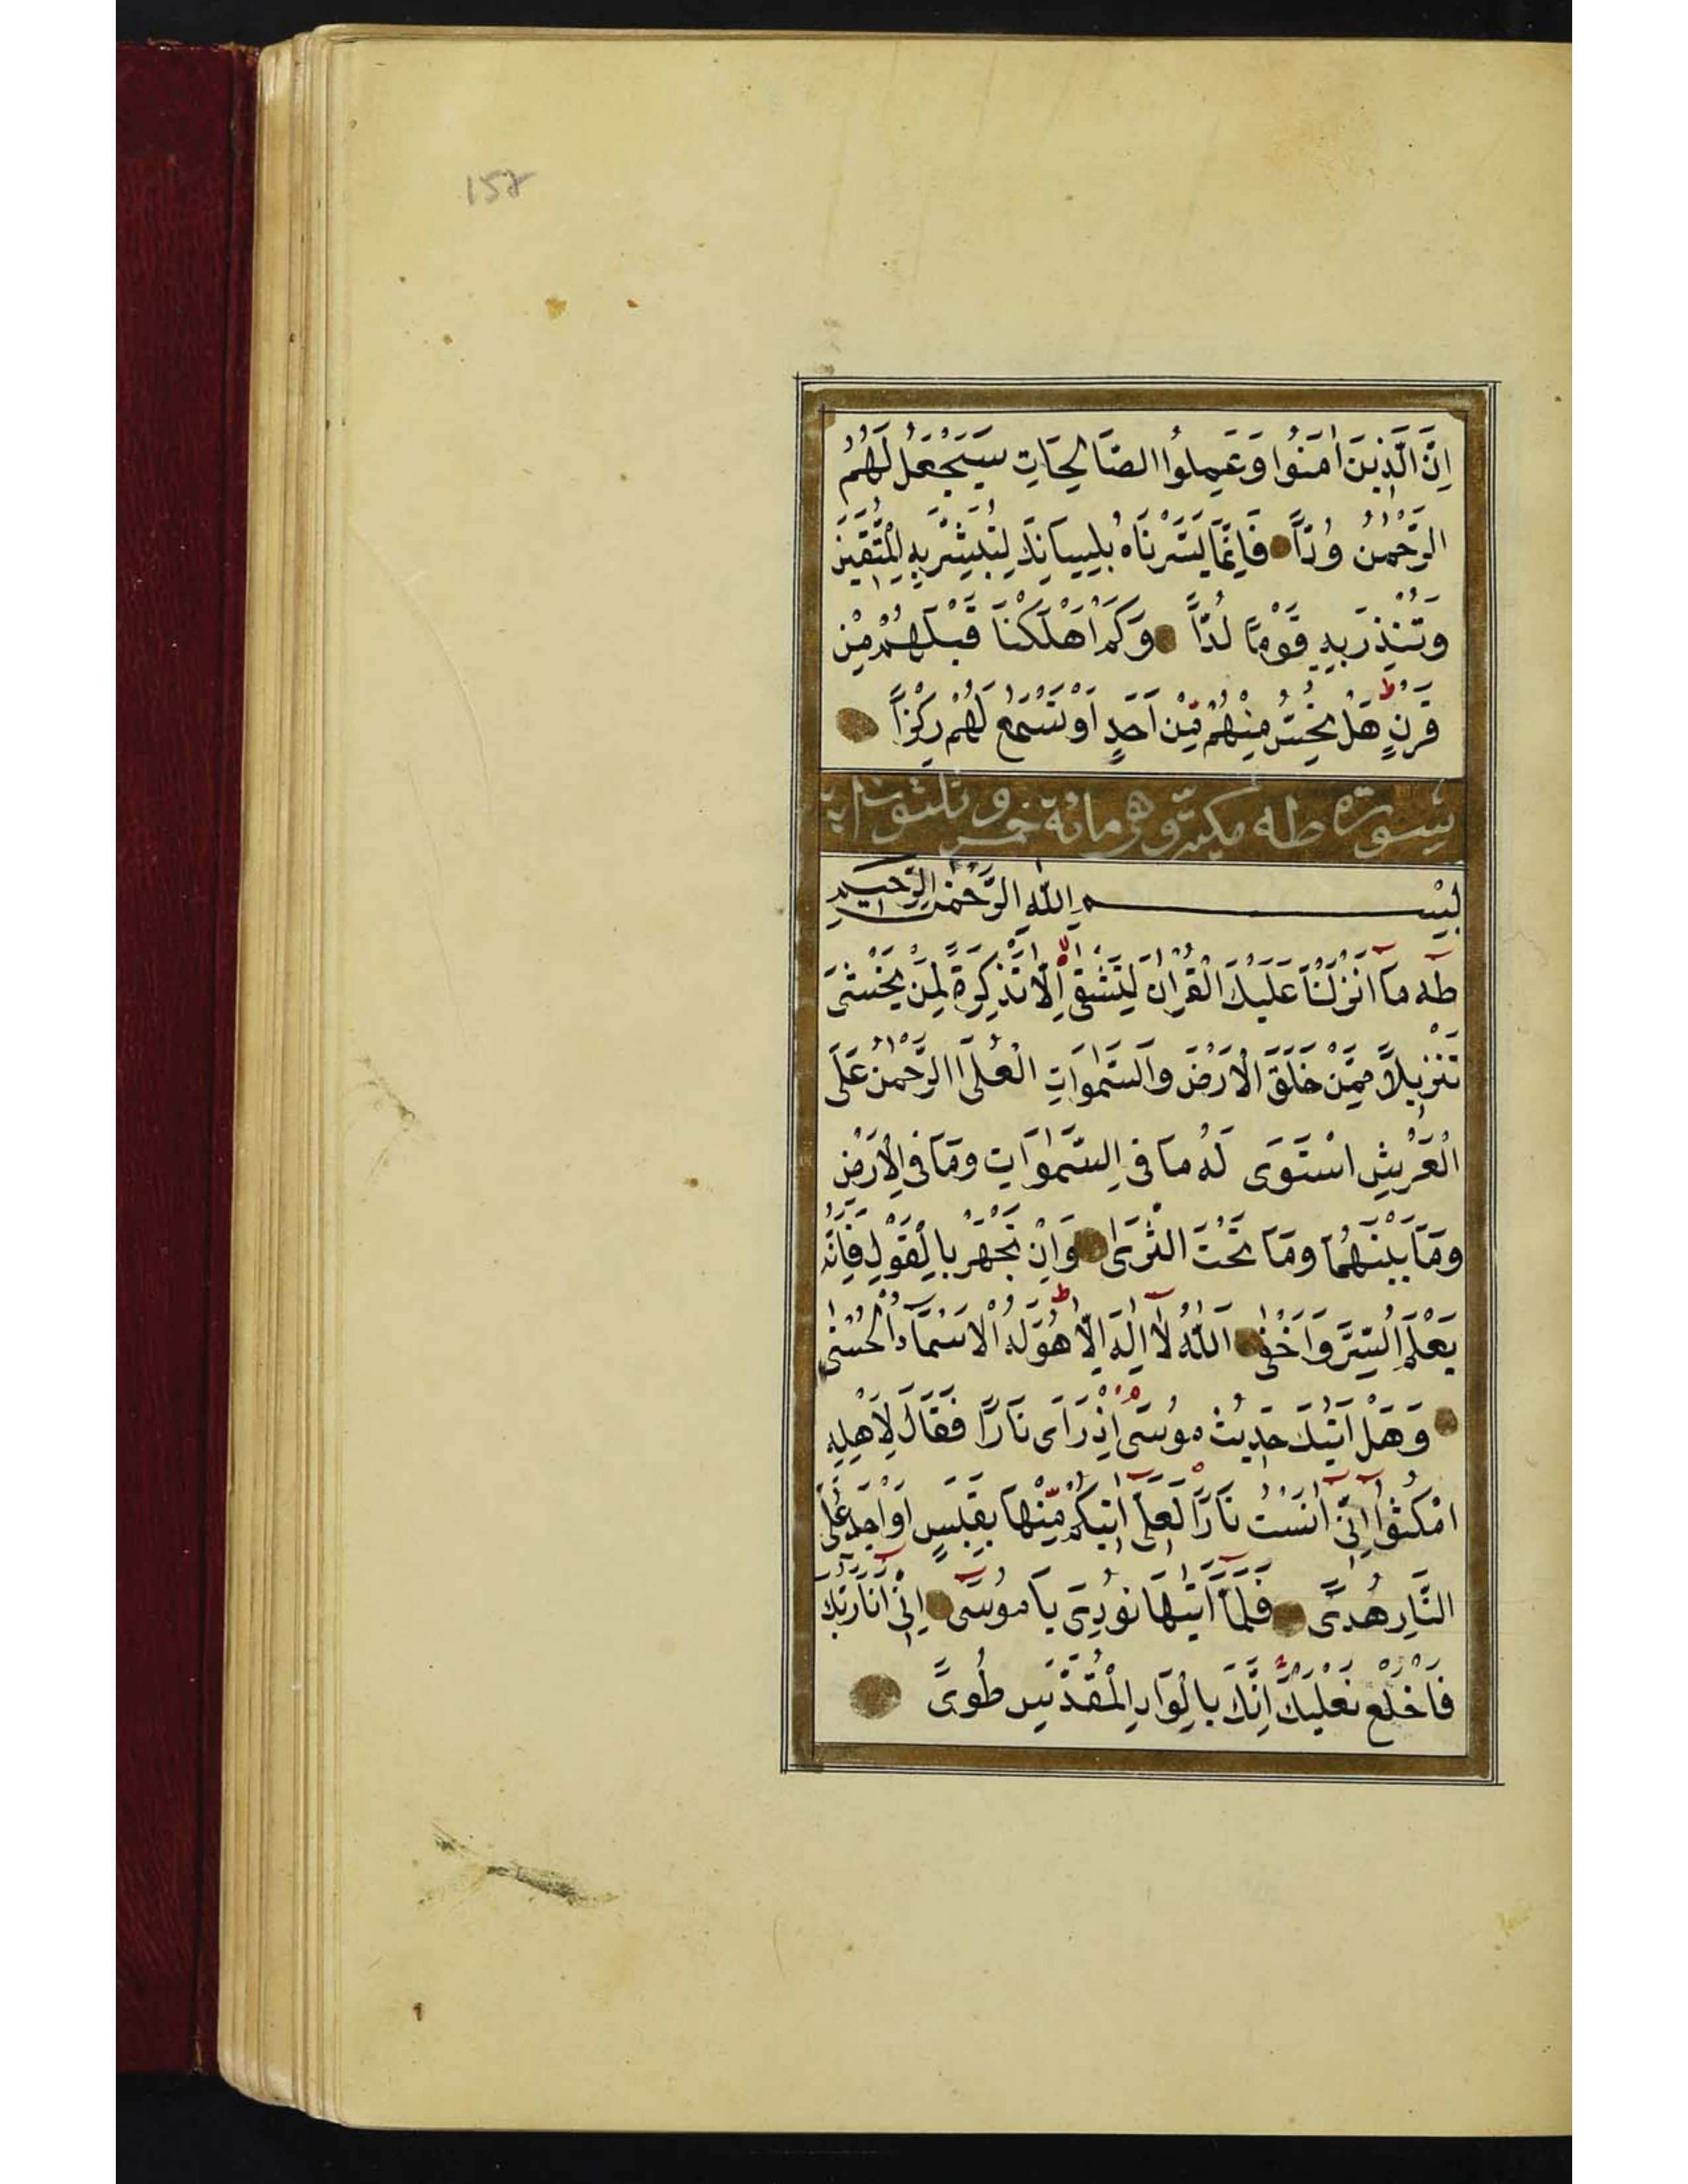 158
اِنَّ الَّذِينَ اٰمَنُوا وَعَمِلُوا الصَّالِحَاتِ سَيَجْعَلُ لَهُمُ
الرَّحْمٰنُ وُدّاً فَاِنَّمَا يَسَّرْنَاهُ بِلِسَانِكَ لِتُبَشِّرَ بِهِ الْمُتَّقِينَ
وَتُنْذِرَ بِهِ قَوْمًا لُدّاً وَكَمْ اَهْلَكْنَا قَبْلَهُمْ مِنْ
قَرْنٍ هَلْ تُحِسُّ مِنْهُمْ مِنْ اَحَدٍ اَوْ تَسْمَعُ لَهُمْ رِكْزاً
سورة طه مكية وهى مائة خمس و ثلثون اية
بِسْمِ اللّٰهِ الرَّحْمٰنِ الرَّحِيمِ
طٰه مَا اَنْزَلْنَا عَلَيْكَ الْقُرْاٰنَ لِتَشْقٰى اِلَّا تَذْكِرَةً لِمَنْ يَخْشٰى
تَنْزِيلاً مِمَّنْ خَلَقَ الْاَرْضَ وَالسَّمٰوَاتِ الْعُلَى الرَّحْمٰنُ عَلَى
الْعَرْشِ اسْتَوَى لَهُ مَا فِى السَّمٰوَاتِ وَمَا فِى الْاَرْضِ
وَمَا بَيْنَهُمَا وَمَا تَحْتَ الثَّرَىٰ وَاِنْ تَجْهَرْ بِالْقَوْلِ فَاِنَّهُ
يَعْلَمُ السِّرَّ وَاَخْفٰى اَللّٰهُ لَا اِلٰهَ اِلَّا هُوَ لَهُ الْاَسْمَاءُ الْحُسْنٰى
وَهَلْ اَتٰيكَ حَدِيثُ مُوسَى اِذْ رَاَى نَارًا فَقَالَ لِاَهْلِهِ
امْكُثُوا اِنِّى اٰنَسْتُ نَارًا لَعَلِّى اٰتِيكُمْ مِنْهَا بِقَبَسٍ اَوْ اَجِدُ عَلَى
النَّارِ هُدًى فَلَمَّا اَتٰيهَا نُودِىَ يَا مُوسَى اِنِّى اَنَا رَبُّكَ
فَاخْلَعْ نَعْلَيْكَ اِنَّكَ بِالْوَادِ الْمُقَدَّسِ طُوىً